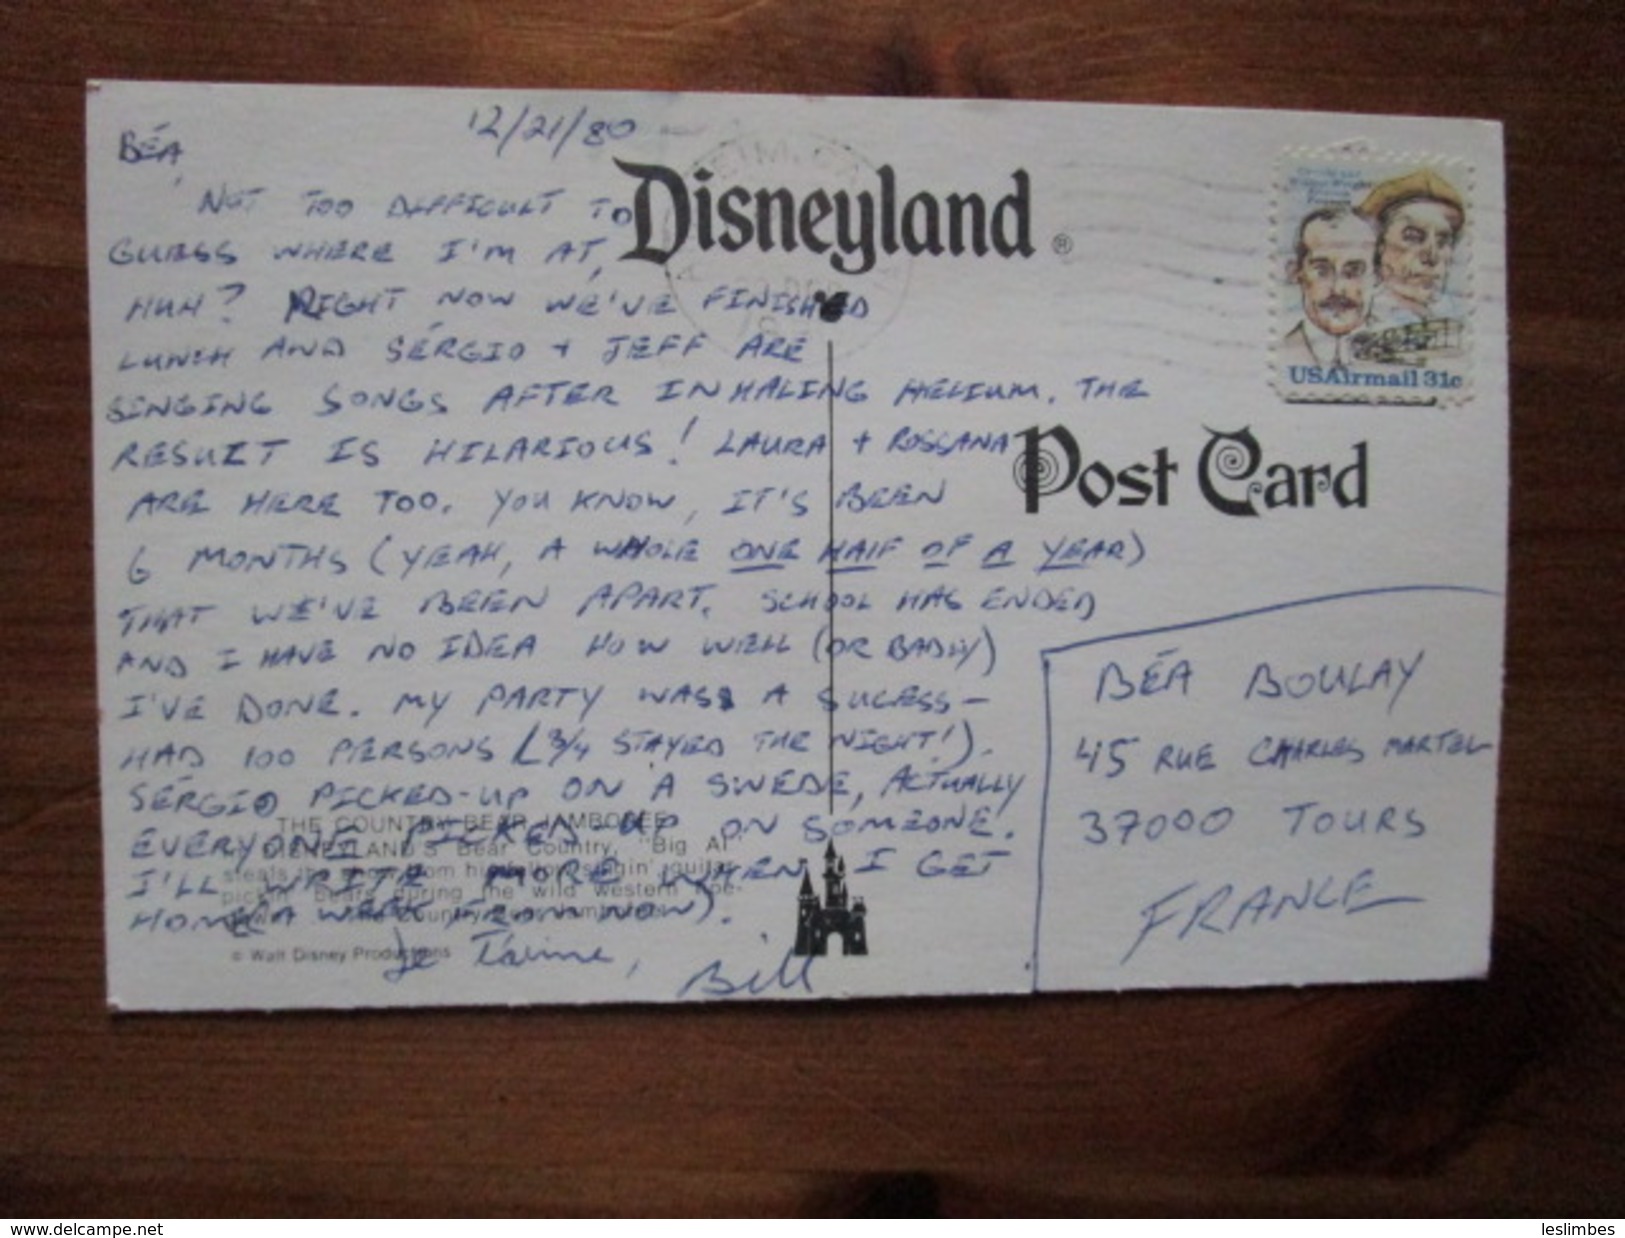 12/21/80
BÉA,
NOT TOO DIFFICULT TO
GUESS WHERE I'M AT,
HUH? RIGHT NOW WE'VE FINISHED
LUNCH AND SÉRGIO + JEFF ARE
SINGING SONGS AFTER INHALING HELIUM. THE
RESULT IS HILARIOUS! LAURA + ROSSANA
ARE HERE TOO. YOU KNOW, IT'S BEEN
6 MONTHS (YEAH, A WHOLE ONE HALF OF A YEAR)
THAT WE'VE BEEN APART. SCHOOL HAS ENDED
AND I HAVE NO IDEA HOW WELL (OR BADLY)
I'VE DONE. MY PARTY WAS A SUCESS -
HAD 100 PERSONS (3/4 STAYED THE NIGHT!).
SÉRGIO PICKED-UP ON A SWEDE, ACTUALLY
EVERYONE PICKED-UP ON SOMEONE.
I'LL WRITE MORE WHEN I GET
HOME (A WEEK FROM NOW).
Je T'aime,
Bill
Disneyland ®
Post Card
Orville and
Wilbur Wright
Aviation
Pioneers
USAirmail 31c
BÉA BOULAY
45 RUE CHARLES MARTEL
37000 TOURS
FRANCE
THE COUNTRY BEAR JAMBOREE
DISNEYLAND'S Bear Country, "Big Al"
steals the show from his fellow singin' guitar-
pickin' Bears during the wild western
Country Bear Jamboree
© Walt Disney Productions
www.delcampe.net
leslimbes